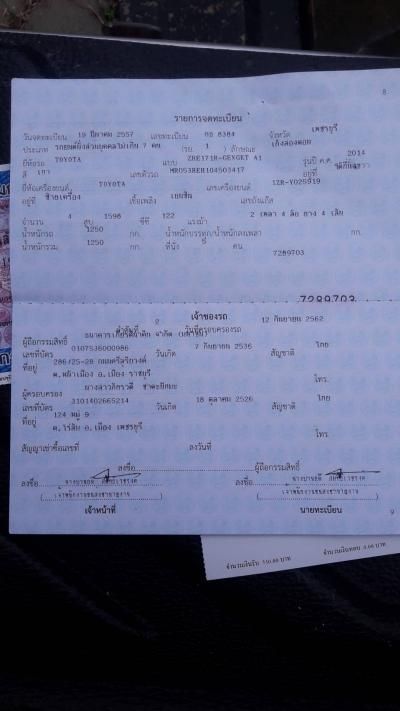 8
รายการจดทะเบียน
วันจดทะเบียน 19 มีนาคม 2557 เลขทะเบียน กธ 8384 จังหวัด เพชรบุรี
ประเภท รถยนต์นั่งส่วนบุคคลไม่เกิน 7 คน (รย. 1 ) ลักษณะ เก๋งสองตอน
ยี่ห้อรถ TOYOTA แบบ ZRE171R-GEXGKT A1 รุ่นปี ค.ศ. 2014
สี เทา เลขตัวรถ MR053REH104503417 อยู่ที่
ยี่ห้อเครื่องยนต์ TOYOTA เลขเครื่องยนต์ 1ZR-Y025919
อยู่ที่ ซ้ายเครื่อง เชื้อเพลิง เบนซิน เลขถังแก๊ส
จำนวน 4 สูบ 1598 ซีซี 122 แรงม้า 2 เพลา 4 ล้อ ยาง 4 เส้น
น้ำหนักรถ 1250 กก. น้ำหนักบรรทุก/น้ำหนักลงเพลา กก.
น้ำหนักรวม 1250 กก. ที่นั่ง คน
7289703
7289703
เจ้าของรถ
ลำดับที่ 2 วันที่ครอบครองรถ 12 กันยายน 2562
ผู้ถือกรรมสิทธิ์ ธนาคารเกียรตินาคิน จำกัด (มหาชน)
เลขที่บัตร 0107536000986 วันเกิด 7 กันยายน 2536 สัญชาติ ไทย
ที่อยู่ 286/25-28 ถนนศรีสุริยวงศ์
ต.หน้าเมือง อ.เมือง ราชบุรี โทร.
ผู้ครอบครอง
เลขที่บัตร 3101402665214 วันเกิด 18 ตุลาคม 2526 สัญชาติ ไทย
ที่อยู่ 124 หมู่ 9
ต.ไร่ส้ม อ.เมือง เพชรบุรี โทร.
สัญญาเช่าซื้อเลขที่ ลงวันที่
ลงชื่อ ผู้ถือกรรมสิทธิ์
ลงชื่อ ลงชื่อ
เจ้าหน้าที่ นายทะเบียน
9
จำนวนเงินรับ บาท จำนวนเงินทอน 0.00 บาท